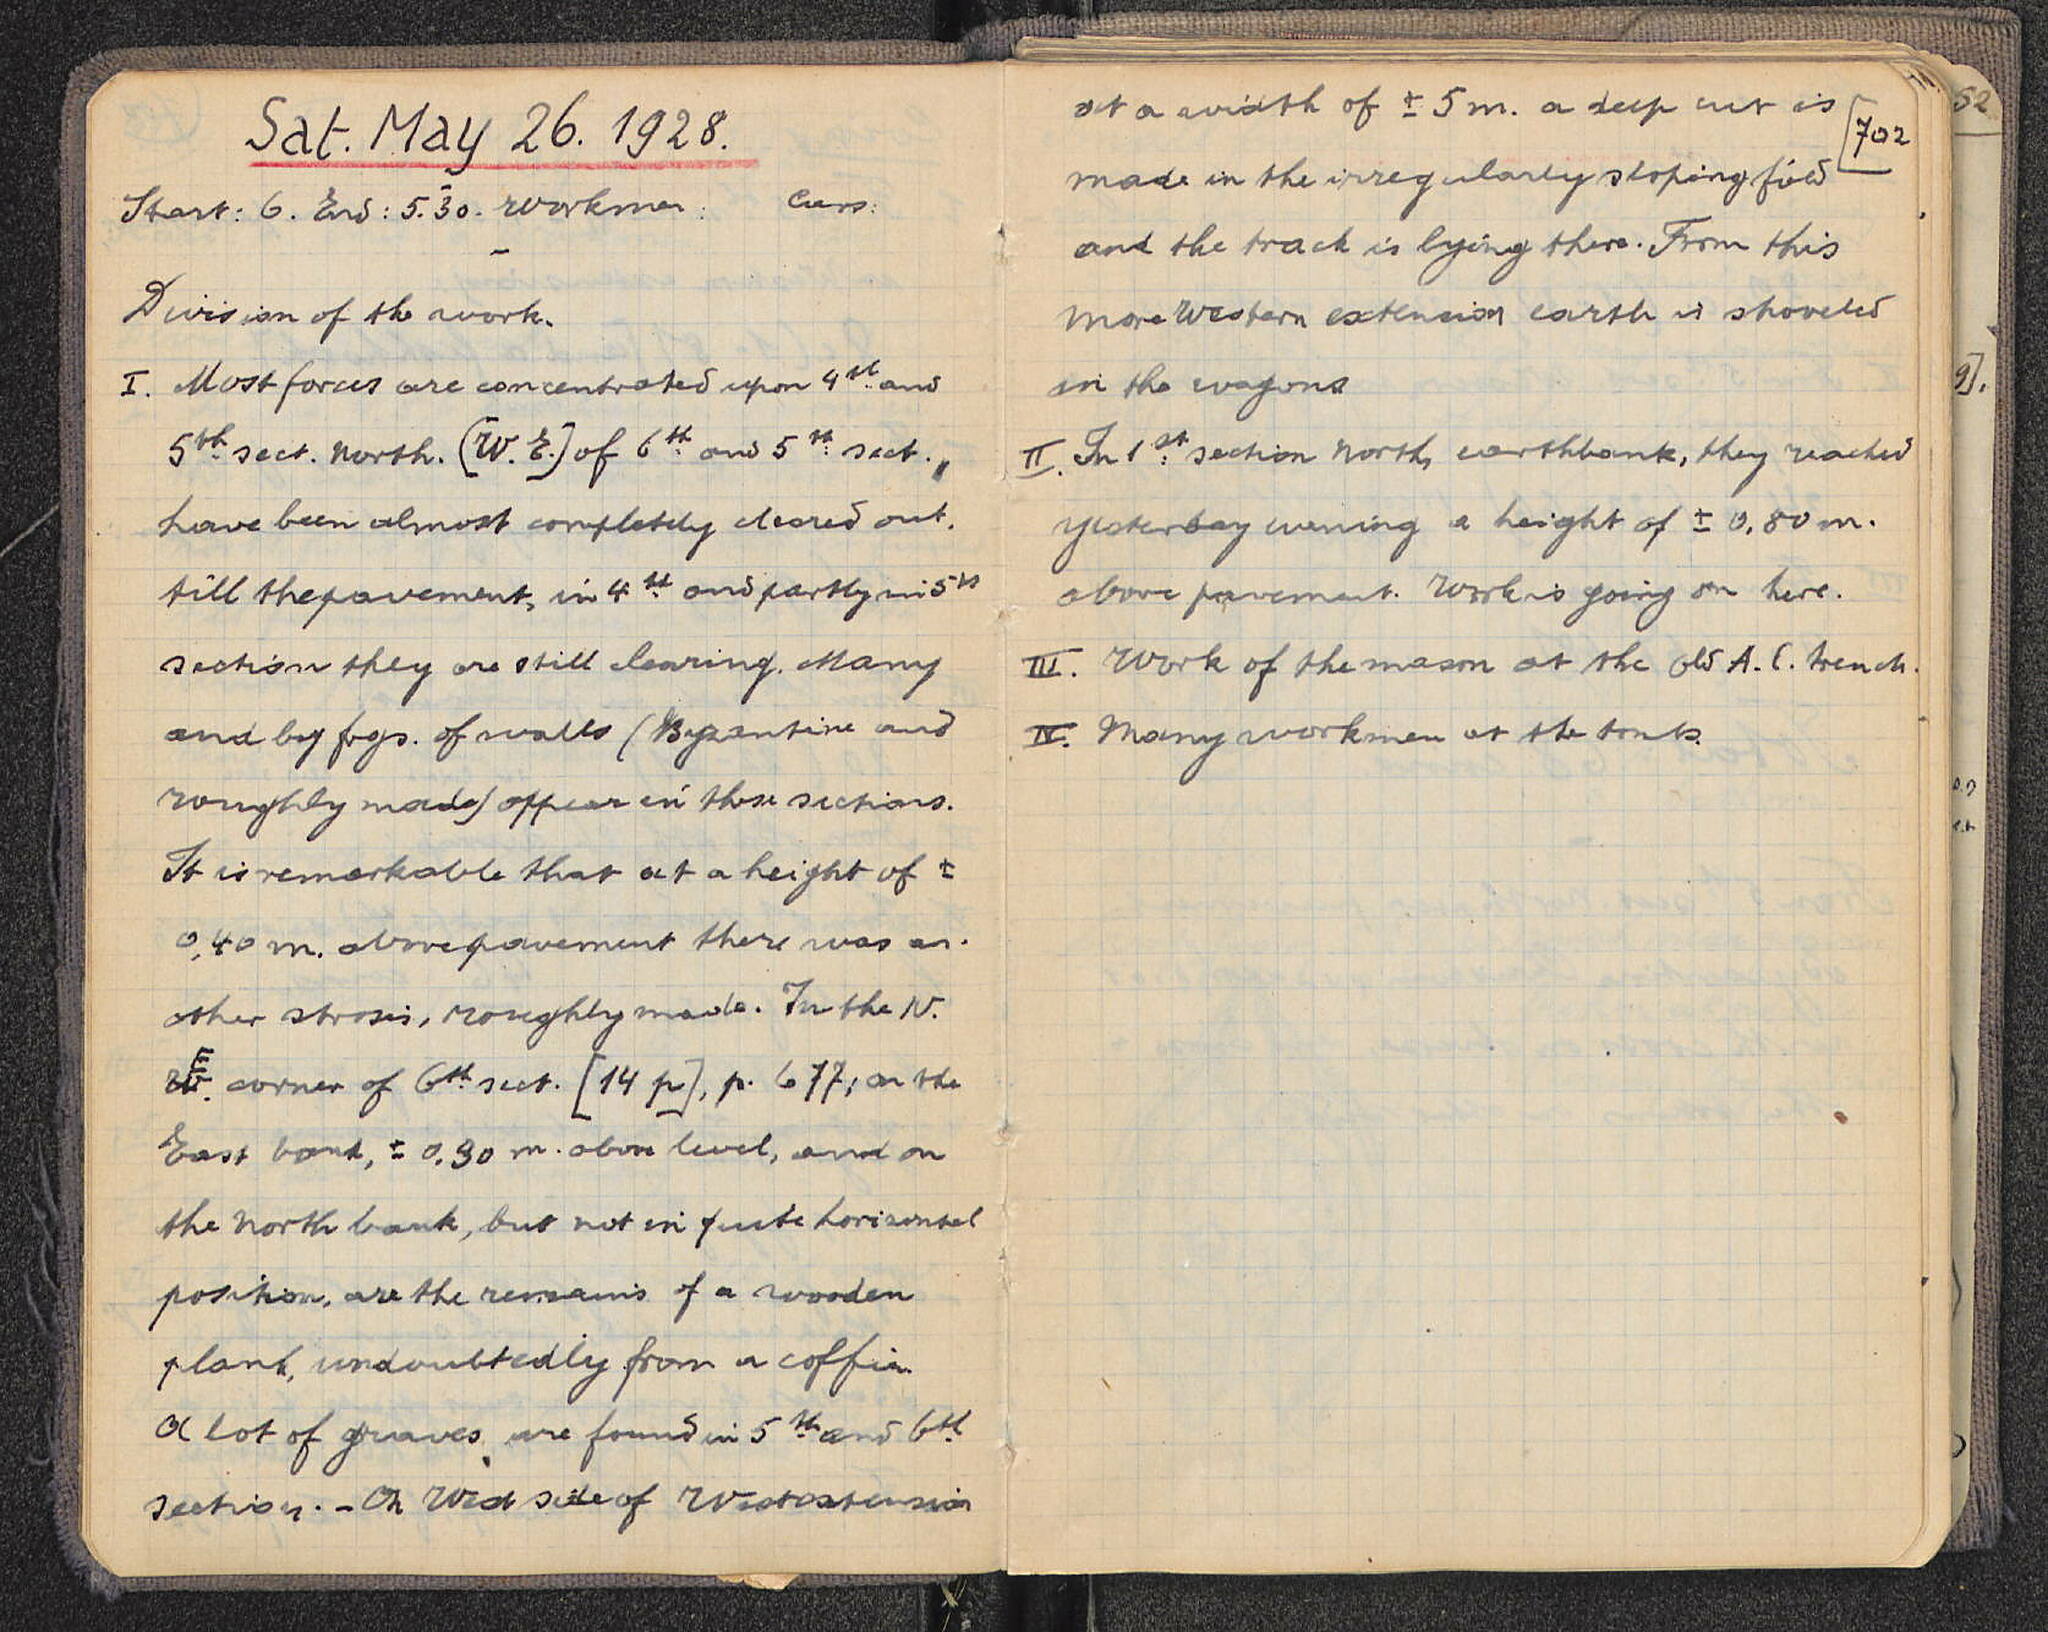 Sat. May 26. 1928.
Start: 6. End: 5.30. Workmen: Cars:
–
Division of the work.
I. Most forces are concentrated upon 4th and
5th sect. North. [W. E.] of 6th and 5th sect.
have been almost completely cleared out.
till the pavement, in 4th and partly in 5th
section they are still clearing. Many
and big frgs. of walls (Byzantine and
roughly made) appear in these sections.
It is remarkable that at a height of ±
0,40 m. above pavement there was an-
other strosis, roughly made. In the N.
E. corner of 6th sect. [14 p], p. 677, on the
East bank, ± 0.90 m. above level, and on
the North bank, but not in quite horizontal
position, are the remains of a wooden
plank, undoubtedly from a coffin.
A lot of graves are found in 5th and 6th
section. – On West side of West extension
at a width of ± 5 m. a deep cut is
[702
made in the irregularly sloping field
and the track is lying there. From this
more Western extension earth is shoveled
in the wagons
II. In 1st section North, earthbank, they reached
yesterday evening a height of ± 0,80 m.
above pavement. Work is going on here.
III. Work of the mason at the old A. C. trench.
IV. Many workmen at the tents.
52
9].